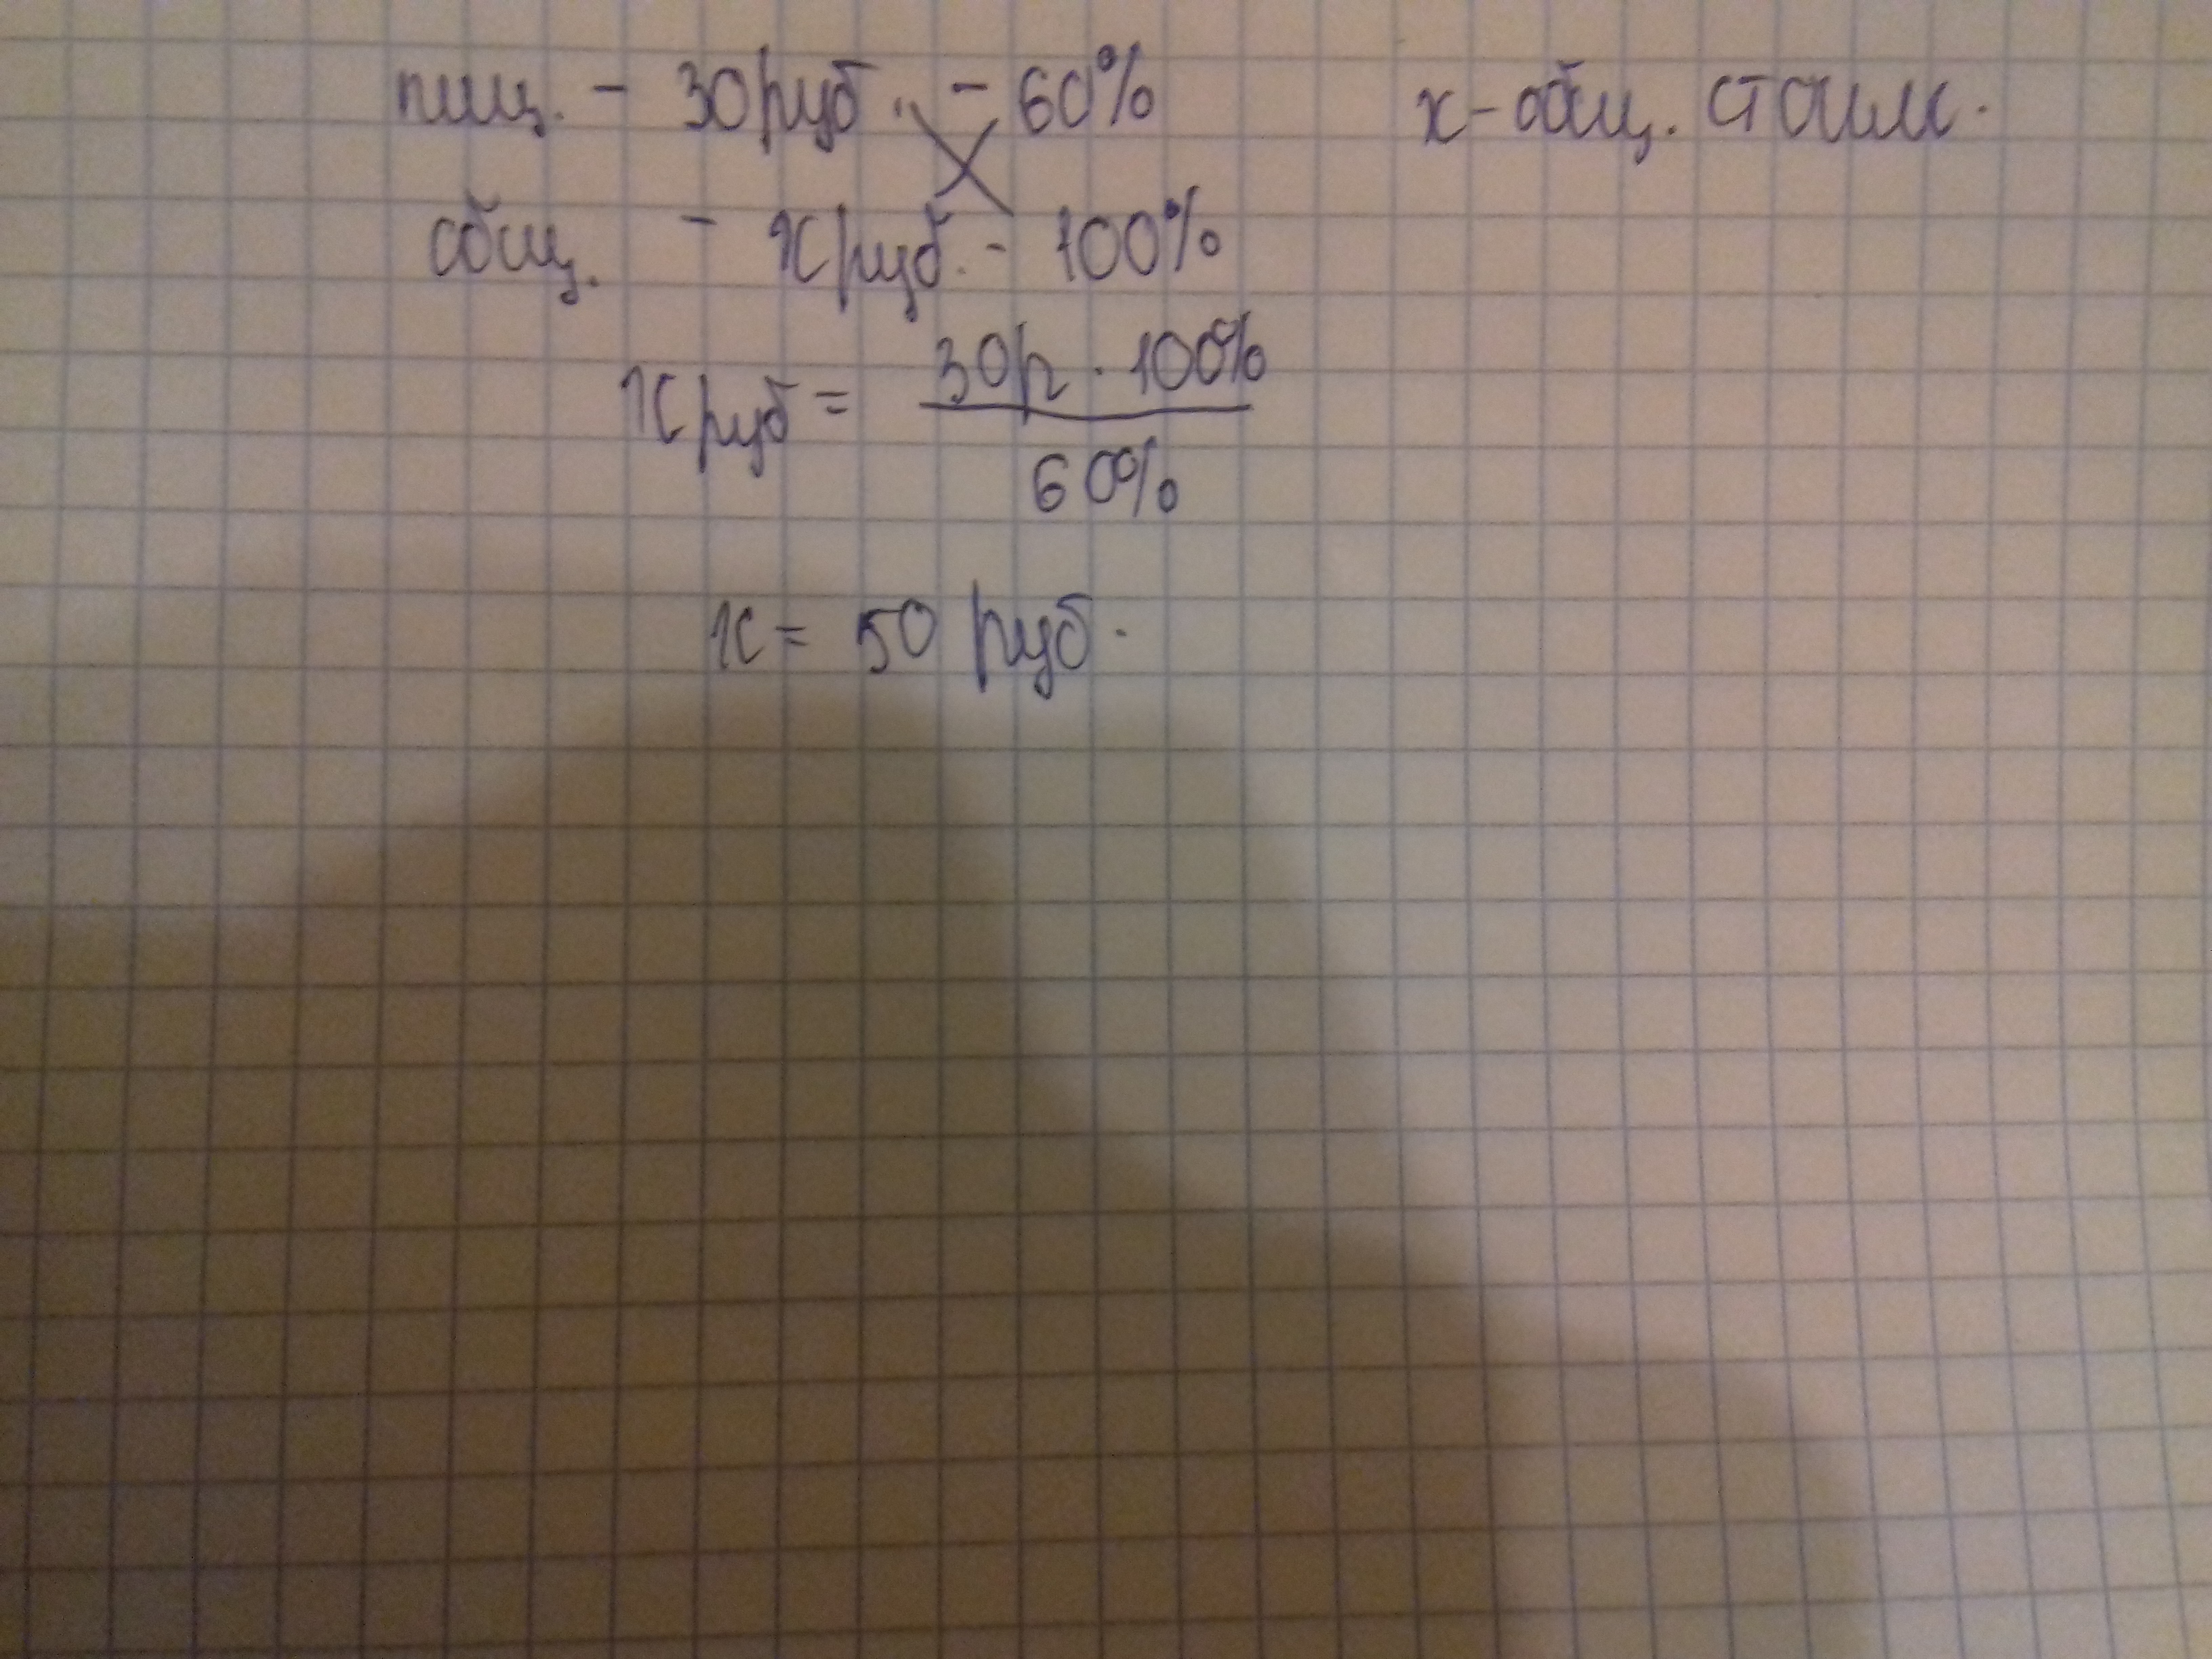 пищ. - 30 руб. - 60%
х - общ. стоим.
общ. - х руб. - 100%
х руб = 30р · 100%
60%
х = 50 руб.